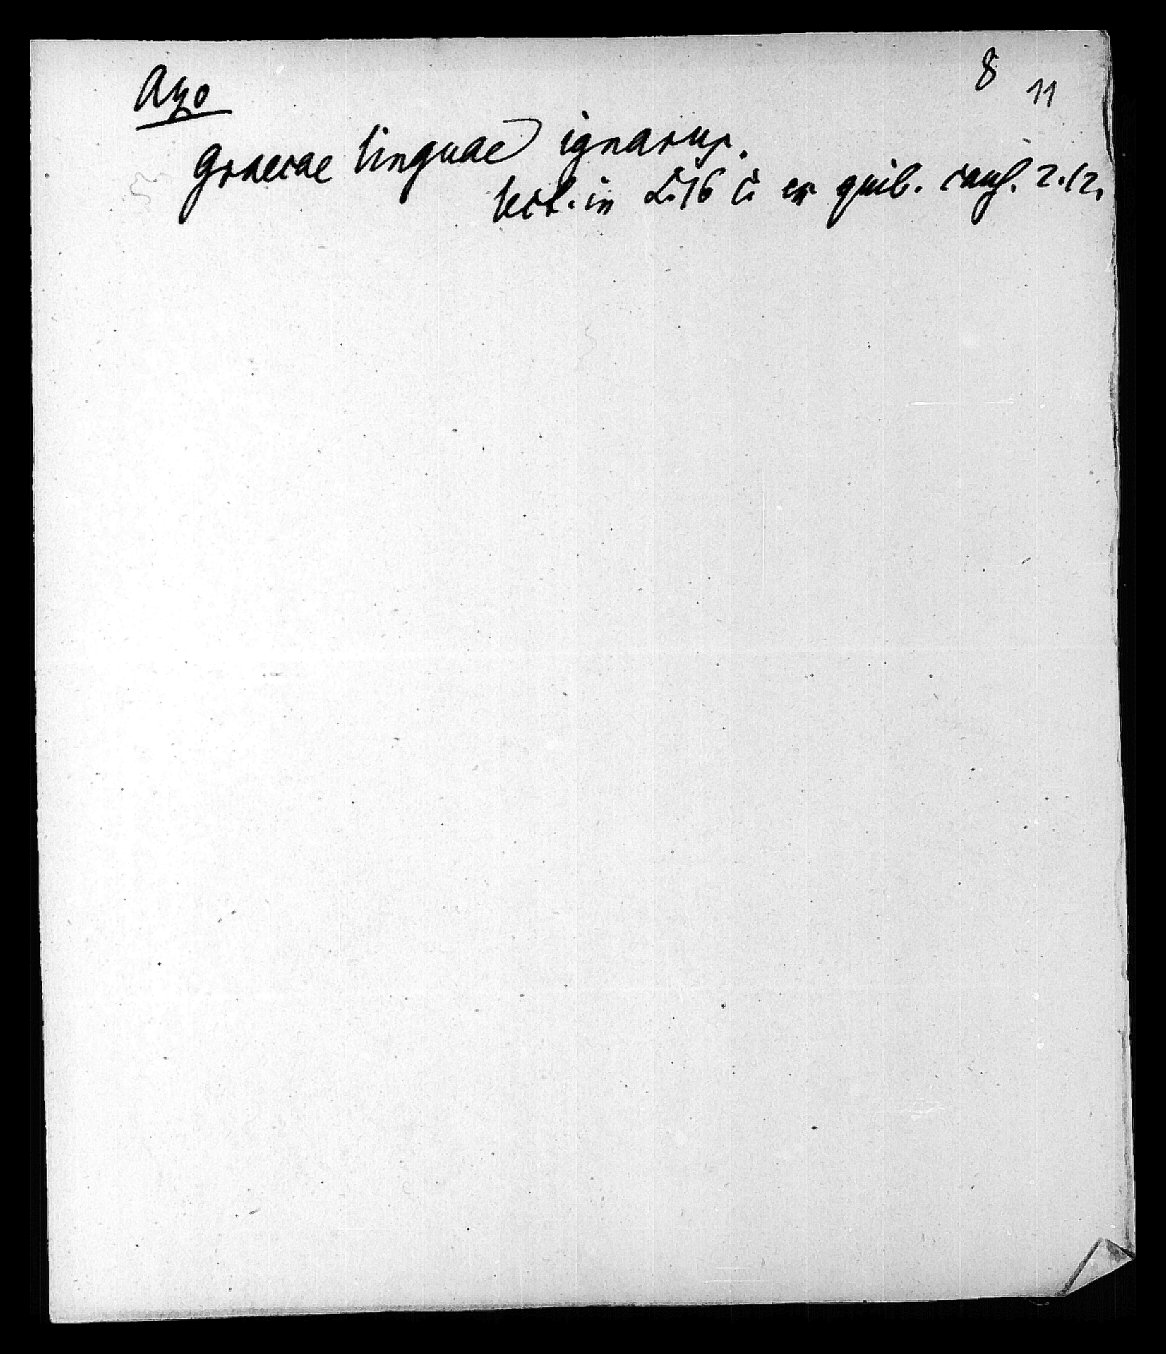 Azo
8 11
graecae linguae ignarus.
lect. in L. 16 C. ex quib. caus. 2. 12.